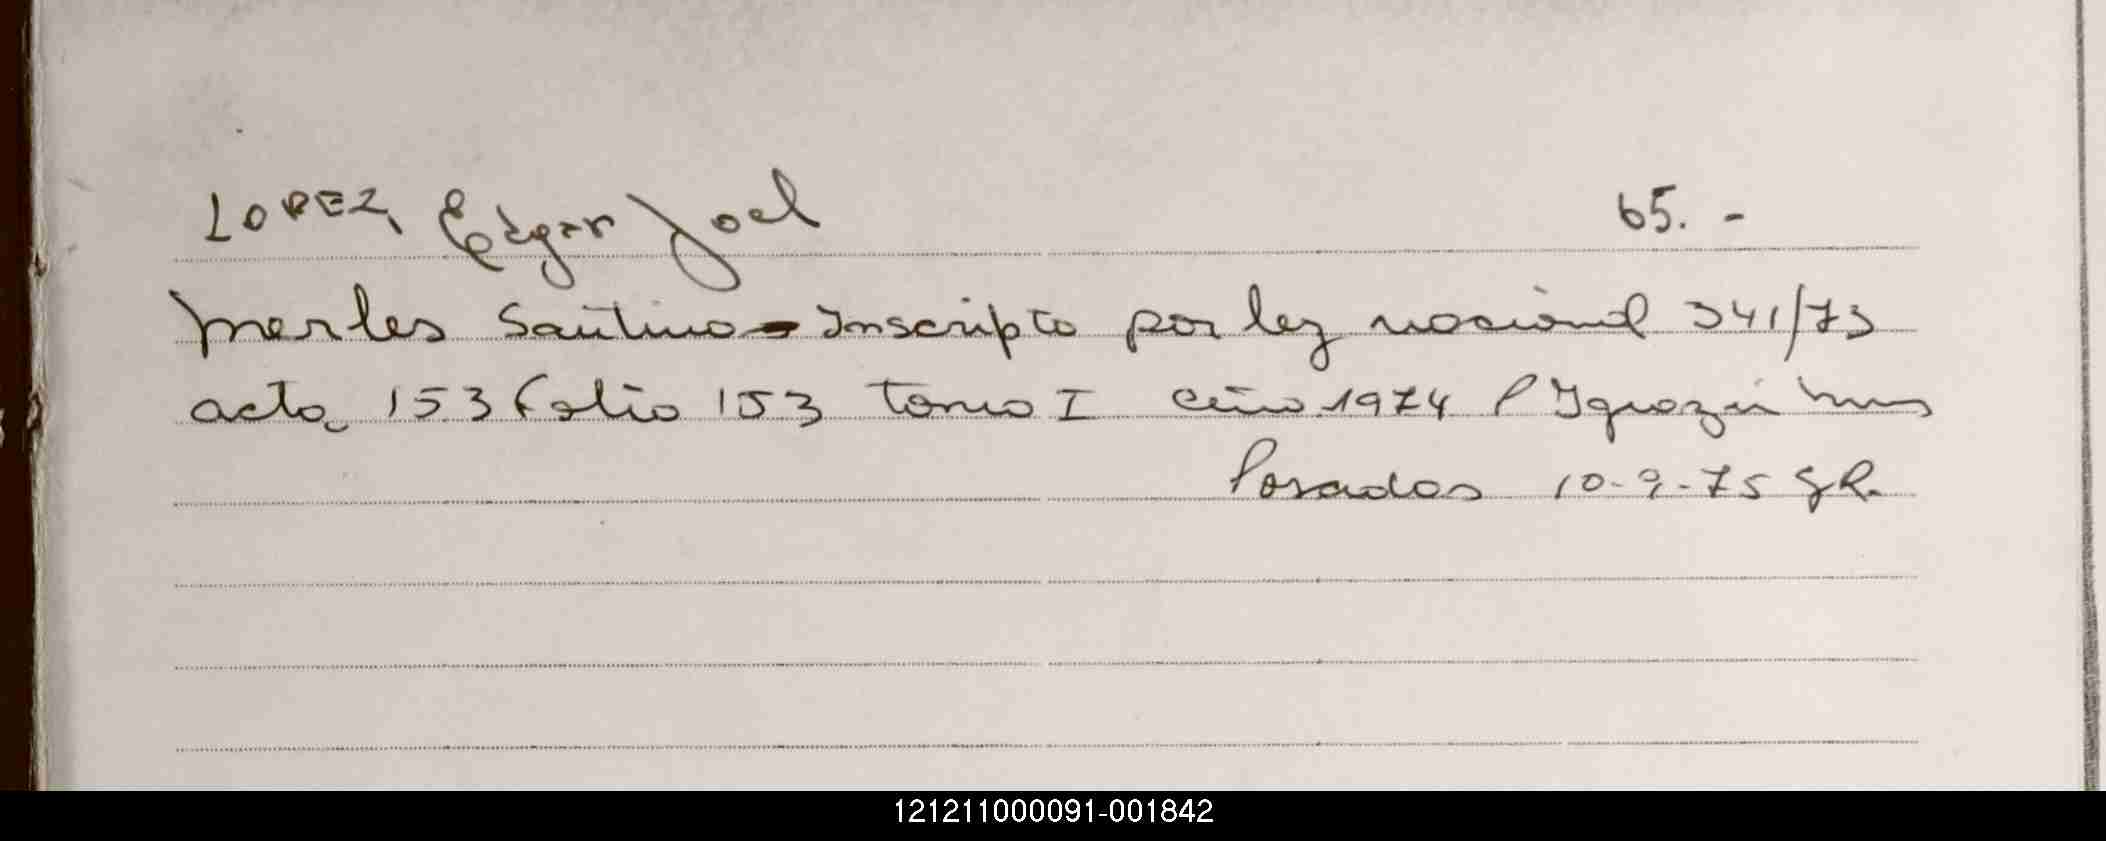 LOPEZ, Edgar Joel 65.-
Merles Santino - Inscripto por ley nacional 341/73
acta 153 folio 153 tomo I año 1974 P Iguazú Mnes
Posadas 10-9-75 GR.
121211000091-001842